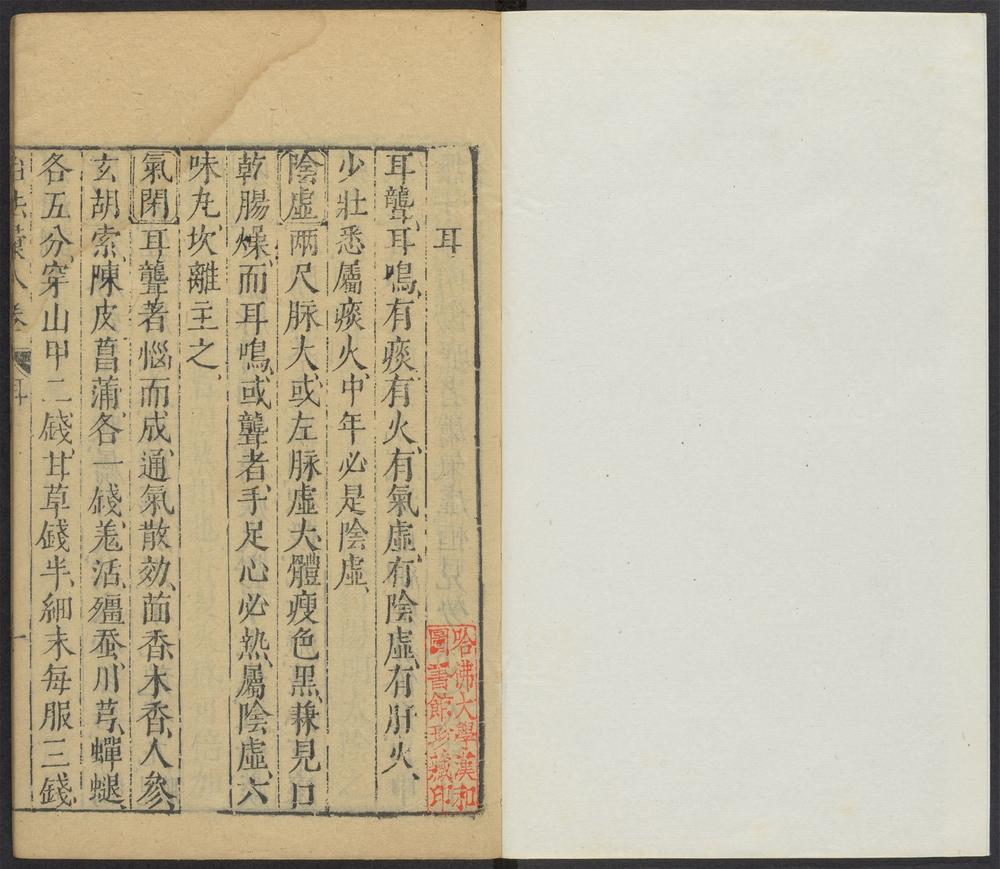 耳
耳聾、耳鳴、有痰、有火、有氣虛、有陰虛、有肝火、
少壯悉屬痰火、中年必是陰虛、
陰虛 兩尺脉大、或左脉虛大、體瘦色黑、兼見口
乾腸燥、而耳鳴、或聾者、手足心必熱、屬陰虛、六
味丸、坎離主之、
氣閉 耳聾著惱而成、通氣散効、茴香、木香、人參、
玄胡索、陳皮、菖蒲、各一錢、羗活、殭蚕、川芎、蟬蛻、
各五分、穿山甲二錢、甘草錢半、細末每服三錢、
卷 耳 一
哈佛大學漢和
圖書館珍藏印